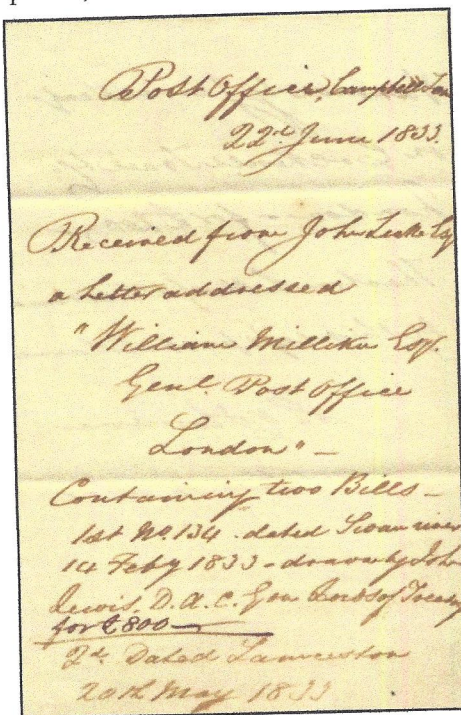 Post Office, Campbell Tow
22d June 1833.
Received from John Leake Esq
a Letter addressed
"William Milliken Esqr.
Genl. Post Office
London" -
Containing two Bills -
1st No. 134. dated Swan river
14 Feby 1833 - drawn by John
Lewis. D. A. C. Gen Lords of Treasy
for £800 -
2d. Dated Launceston
20th May 1833